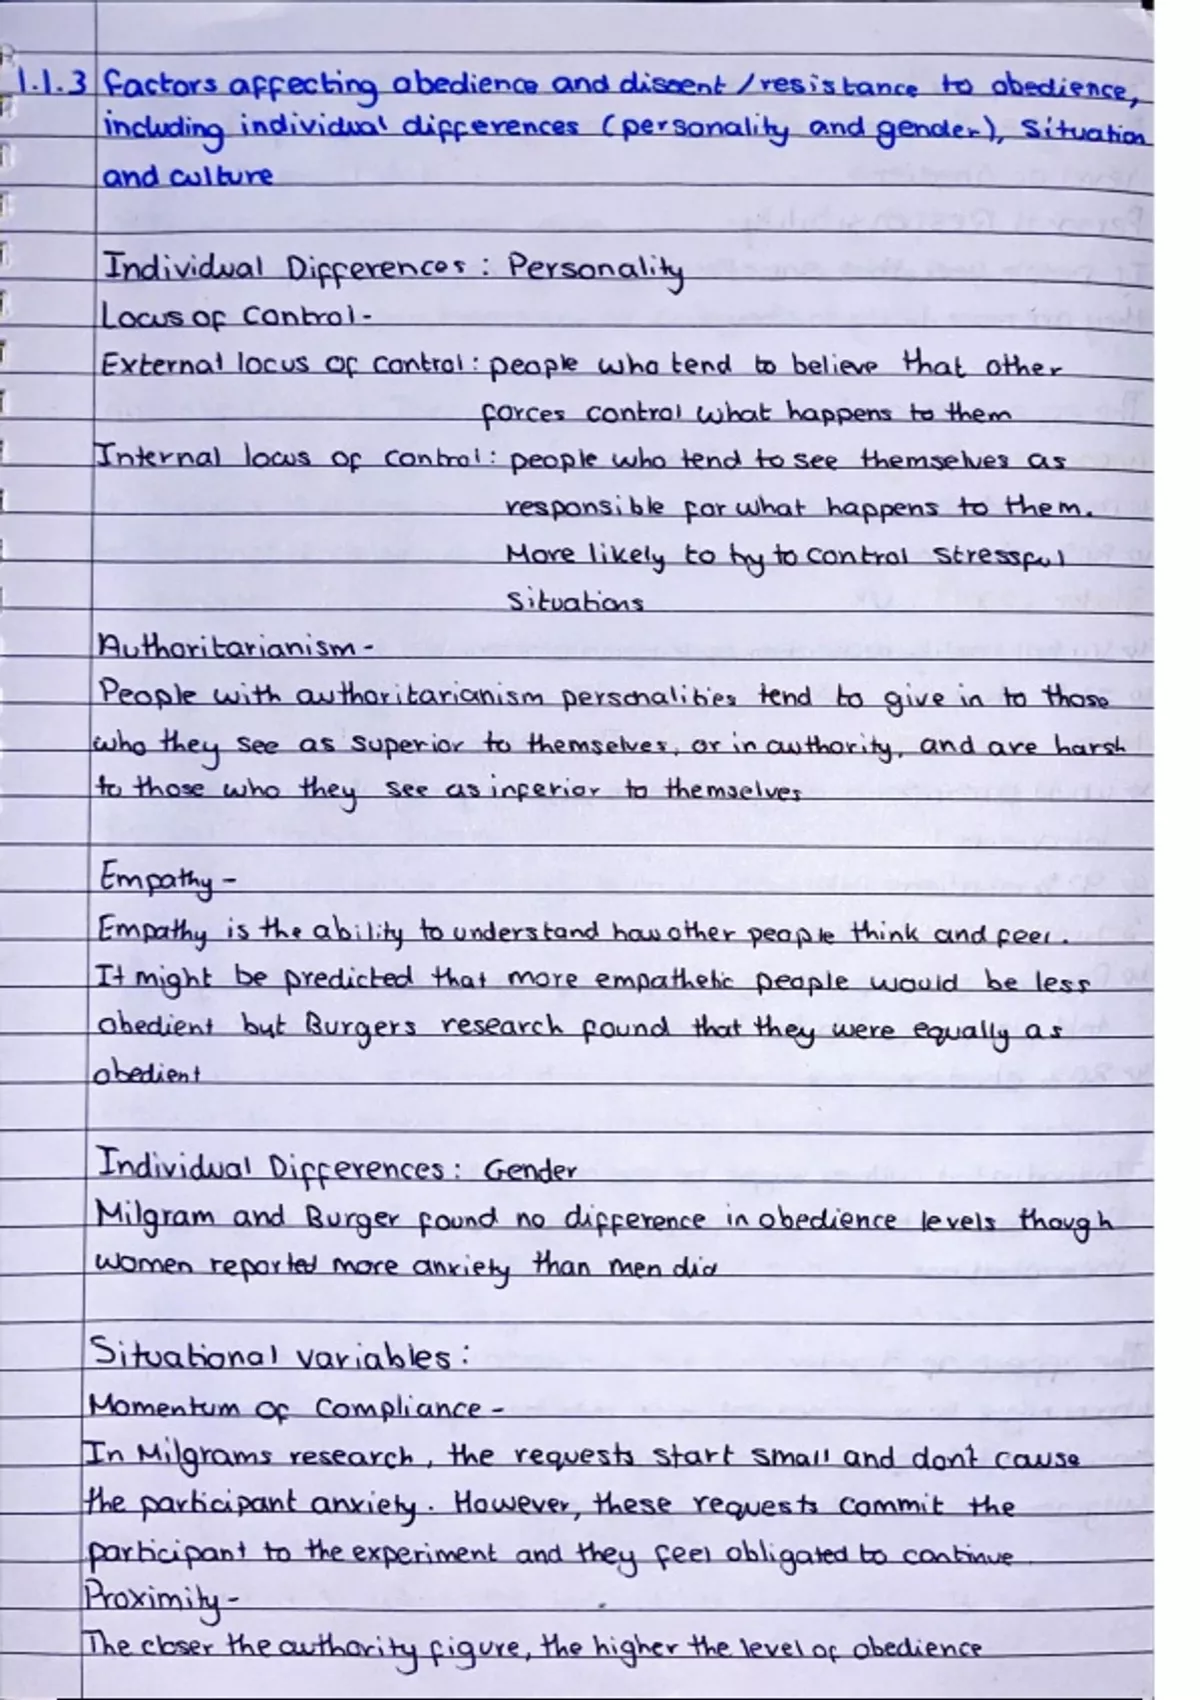 1.1.3 Factors affecting obedience and dissent / resistance to obedience,
including individual differences (personality and gender), situation
and culture
Individual Differences: Personality
Locus of Control-
External locus of control: people who tend to believe that other
forces control what happens to them
Internal locus of control: people who tend to see themselves as
responsible for what happens to them.
More likely to try to control stressful
situations
Authoritarianism-
People with authoritarianism personalities tend to give in to those
who they see as superior to themselves, or in authority, and are harsh
to those who they see as inferior to themselves
Empathy-
Empathy is the ability to understand how other people think and feel.
It might be predicted that more empathetic people would be less
obedient but Burgers research found that they were equally as
obedient
Individual Differences: Gender
Milgram and Burger found no difference in obedience levels though
women reported more anxiety than men did
Situational variables:
Momentum of Compliance-
In Milgrams research, the requests start small and don't cause
the participant anxiety. However, these requests commit the
participant to the experiment and they feel obligated to continue
Proximity-
The closer the authority figure, the higher the level of obedience